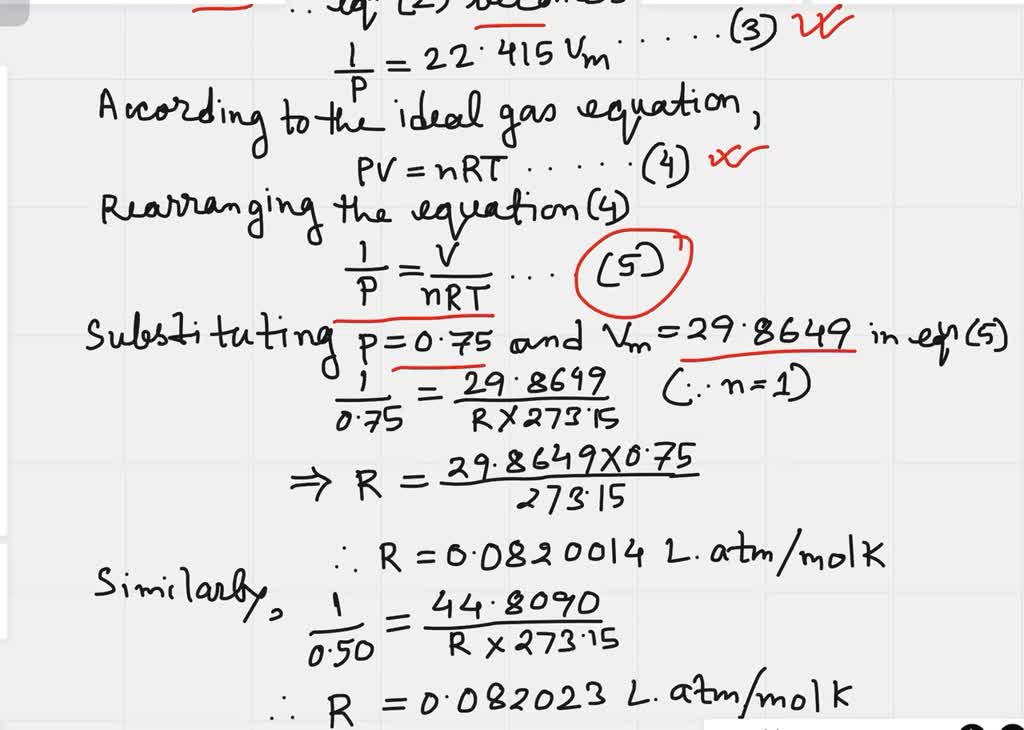 ∴ eqⁿ (2) becomes
1/P = 22.415 Vm ...... (3)
According to the ideal gas equation,
PV = nRT ...... (4)
Rearranging the equation (4)
1/P = V/nRT ... (5)
Substituting P = 0.75 and Vm = 29.8649 in eqⁿ (5)
1/0.75 = 29.8649/R×273.15 (∵ n = 1)
⇒ R = 29.8649×0.75/273.15
∴ R = 0.0820014 L.atm/molK
Similarly,
1/0.50 = 44.8090/R×273.15
∴ R = 0.082023 L.atm/molK